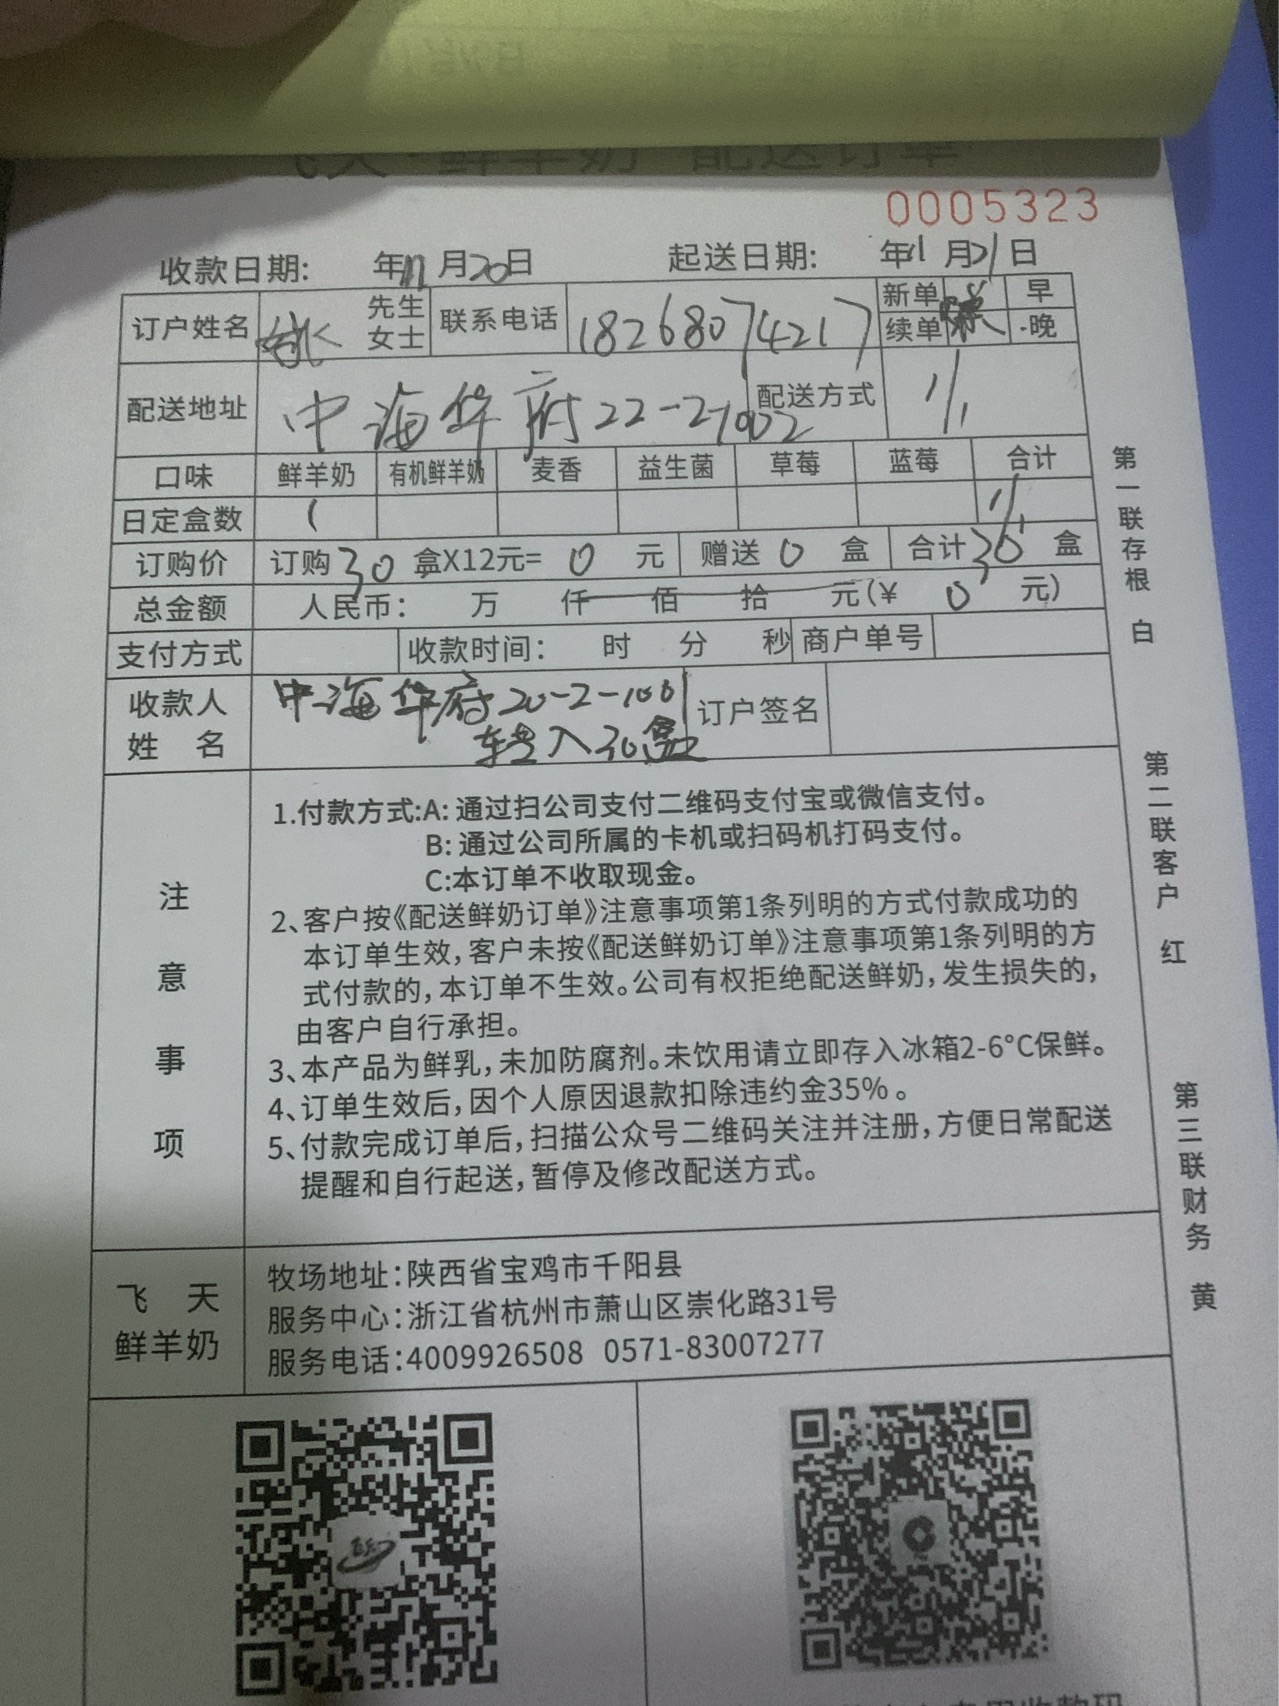 飞天·鲜羊奶 配送订单
0005323
收款日期: 年11月20日 起送日期: 年11月21日
订户姓名 先生 女士 联系电话 18268074217 新单 续单 早 晚
配送地址 中海华府22-2-1002 配送方式 1/1
口味 鲜羊奶 有机鲜羊奶 麦香 益生菌 草莓 蓝莓 合计
日定盒数 1 1/1
订购价 订购30盒X12元=0元 赠送0盒 合计30盒
总金额 人民币: 万 仟 佰 拾 元(¥ 0 元)
支付方式 收款时间: 时 分 秒 商户单号
收款人 中海华府20-2-1001 订户签名
姓 名 转入30盒
注意事项
1.付款方式:A:通过扫公司支付二维码支付宝或微信支付。
B:通过公司所属的卡机或扫码机打码支付。
C:本订单不收取现金。
2、客户按《配送鲜奶订单》注意事项第1条列明的方式付款成功的
本订单生效,客户未按《配送鲜奶订单》注意事项第1条列明的方
式付款的,本订单不生效。公司有权拒绝配送鲜奶,发生损失的,
由客户自行承担。
3、本产品为鲜乳,未加防腐剂。未饮用请立即存入冰箱2-6°C保鲜。
4、订单生效后,因个人原因退款扣除违约金35%。
5、付款完成订单后,扫描公众号二维码关注并注册,方便日常配送
提醒和自行起送,暂停及修改配送方式。
飞 天
鲜羊奶
牧场地址:陕西省宝鸡市千阳县
服务中心:浙江省杭州市萧山区崇化路31号
服务电话:4009926508 0571-83007277
第一联存根 白
第二联客户 红
第三联财务 黄